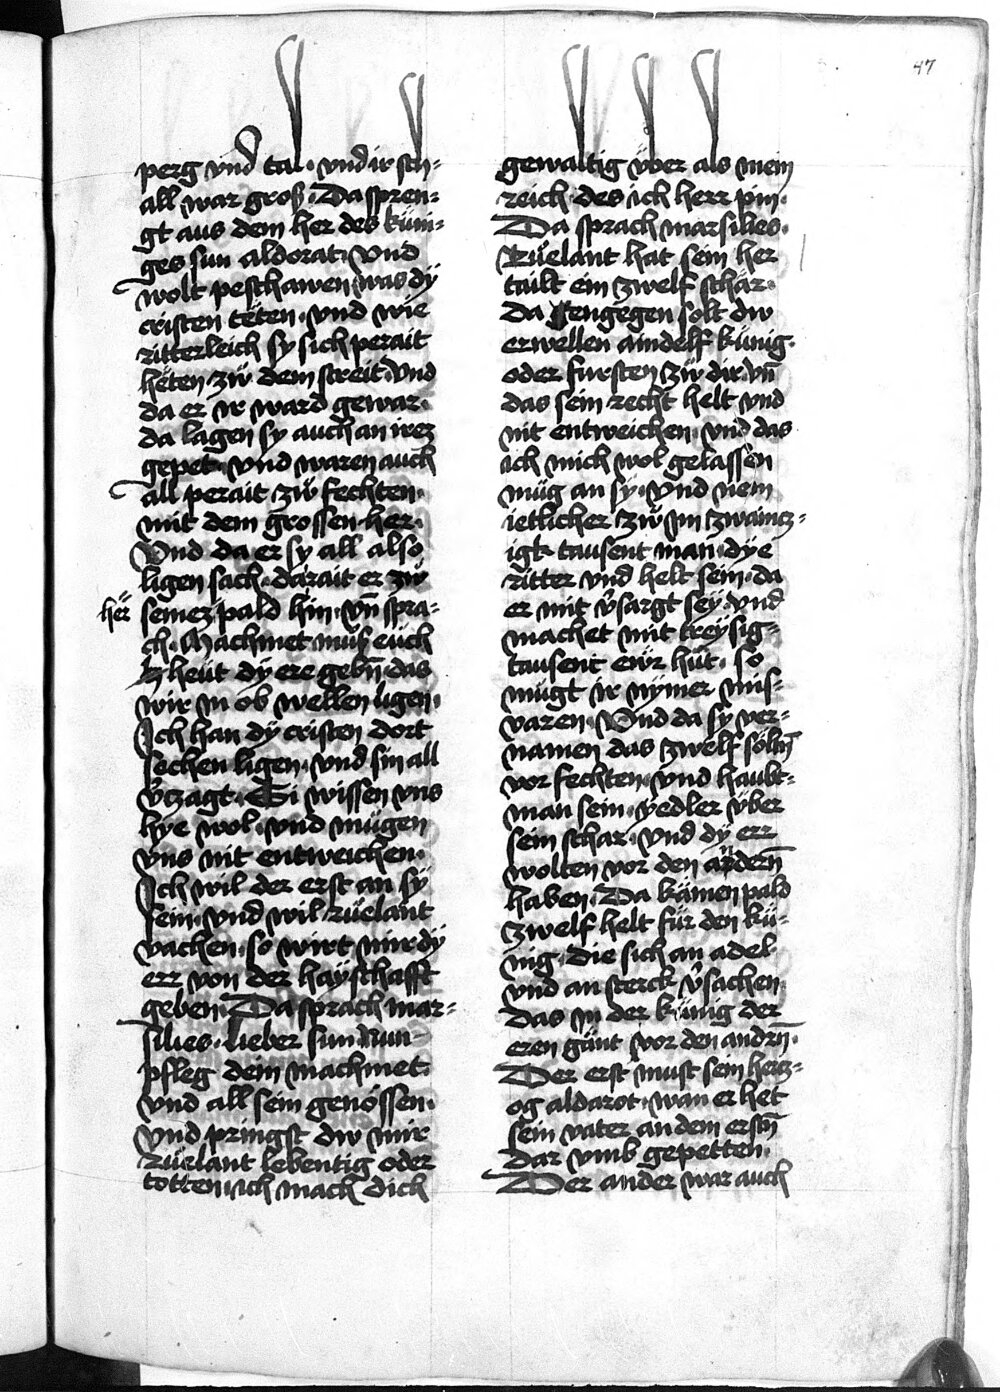 47
perg vnd tal · vnd ir sch-
all war groß · Da spren-
gt aus dem her des küni-
ges sun aldorat · Vnd
wolt peschawen was dÿ
cristen teten · vnd wie
ritterleich sy sich perait
heten zw dem streit · Vnd
da er ir ward gewar ·
da lagen sy auch an irez
gepet · vnd waren auch
all perait zw fechten ·
mit dem grossen her ·
Vnd da er sy all also
ligen sach · da rait er zw
her seinez pald hin · vn̄ spra-
ch · Machmet muß eüch
heüt dÿ ere gebn̄ das
wir in ob wellen ligen ·
Ich han dÿ cristen dort
sechen ligen · vnd sin all
v̉tzagt · Si wissen vns
hye wol · vnd mügen
vns nit entweichen ·
Ich wil der erst an sÿ
sein · vnd wil rüelant
vachen · so wirt mir dÿ
err von der haÿschafft
geben · Da sprach mar-
silies · lieber sun Nun
pfleg dein machmet ·
vnd all sein genossen ·
Vnd pringst dw mir
Rüelant lebentig oder
totten · ich mach dich
gewaltig vber als mein
reich · des ich herr pin ·
Da sprach marsilies ·
Rüelant hat sein her
tailt ein zwelf schar ·
Da engegen solt dw
erwellen aindelf künig ·
oder fursten zw dir · vn̄
das sein recht helt vnd
nit entweichen · vnd das
ich mich wol gelassen
müg an sy · Vnd nem
ietlicher zw im zwaincz-
igk tausent man · dÿe
ritter vnd helt sein · da
er mit v̉sargt seÿ · vnd
machet mit treÿsig-
tausent ewr hüt · so
mügt ir nÿmer mis-
varen · Vnd da sy ver-
namen das zwelf söln̄
vor fechten · vnd haubt-
man sein · yedler vber
sein schar · vnd dÿ err
wolten vor den andern̄
haben · Da kämen pald
zwelf helt für den kü-
nig · Die sich an adel
vnd an sterck v̉sachen
das in der künig der
eren günt vor den andrn̄ ·
Der erst must sein hercz-
og aldarot · wan er het
sein vater an dem erstn̄
dar vmb gepetten ·
Der ander war auch